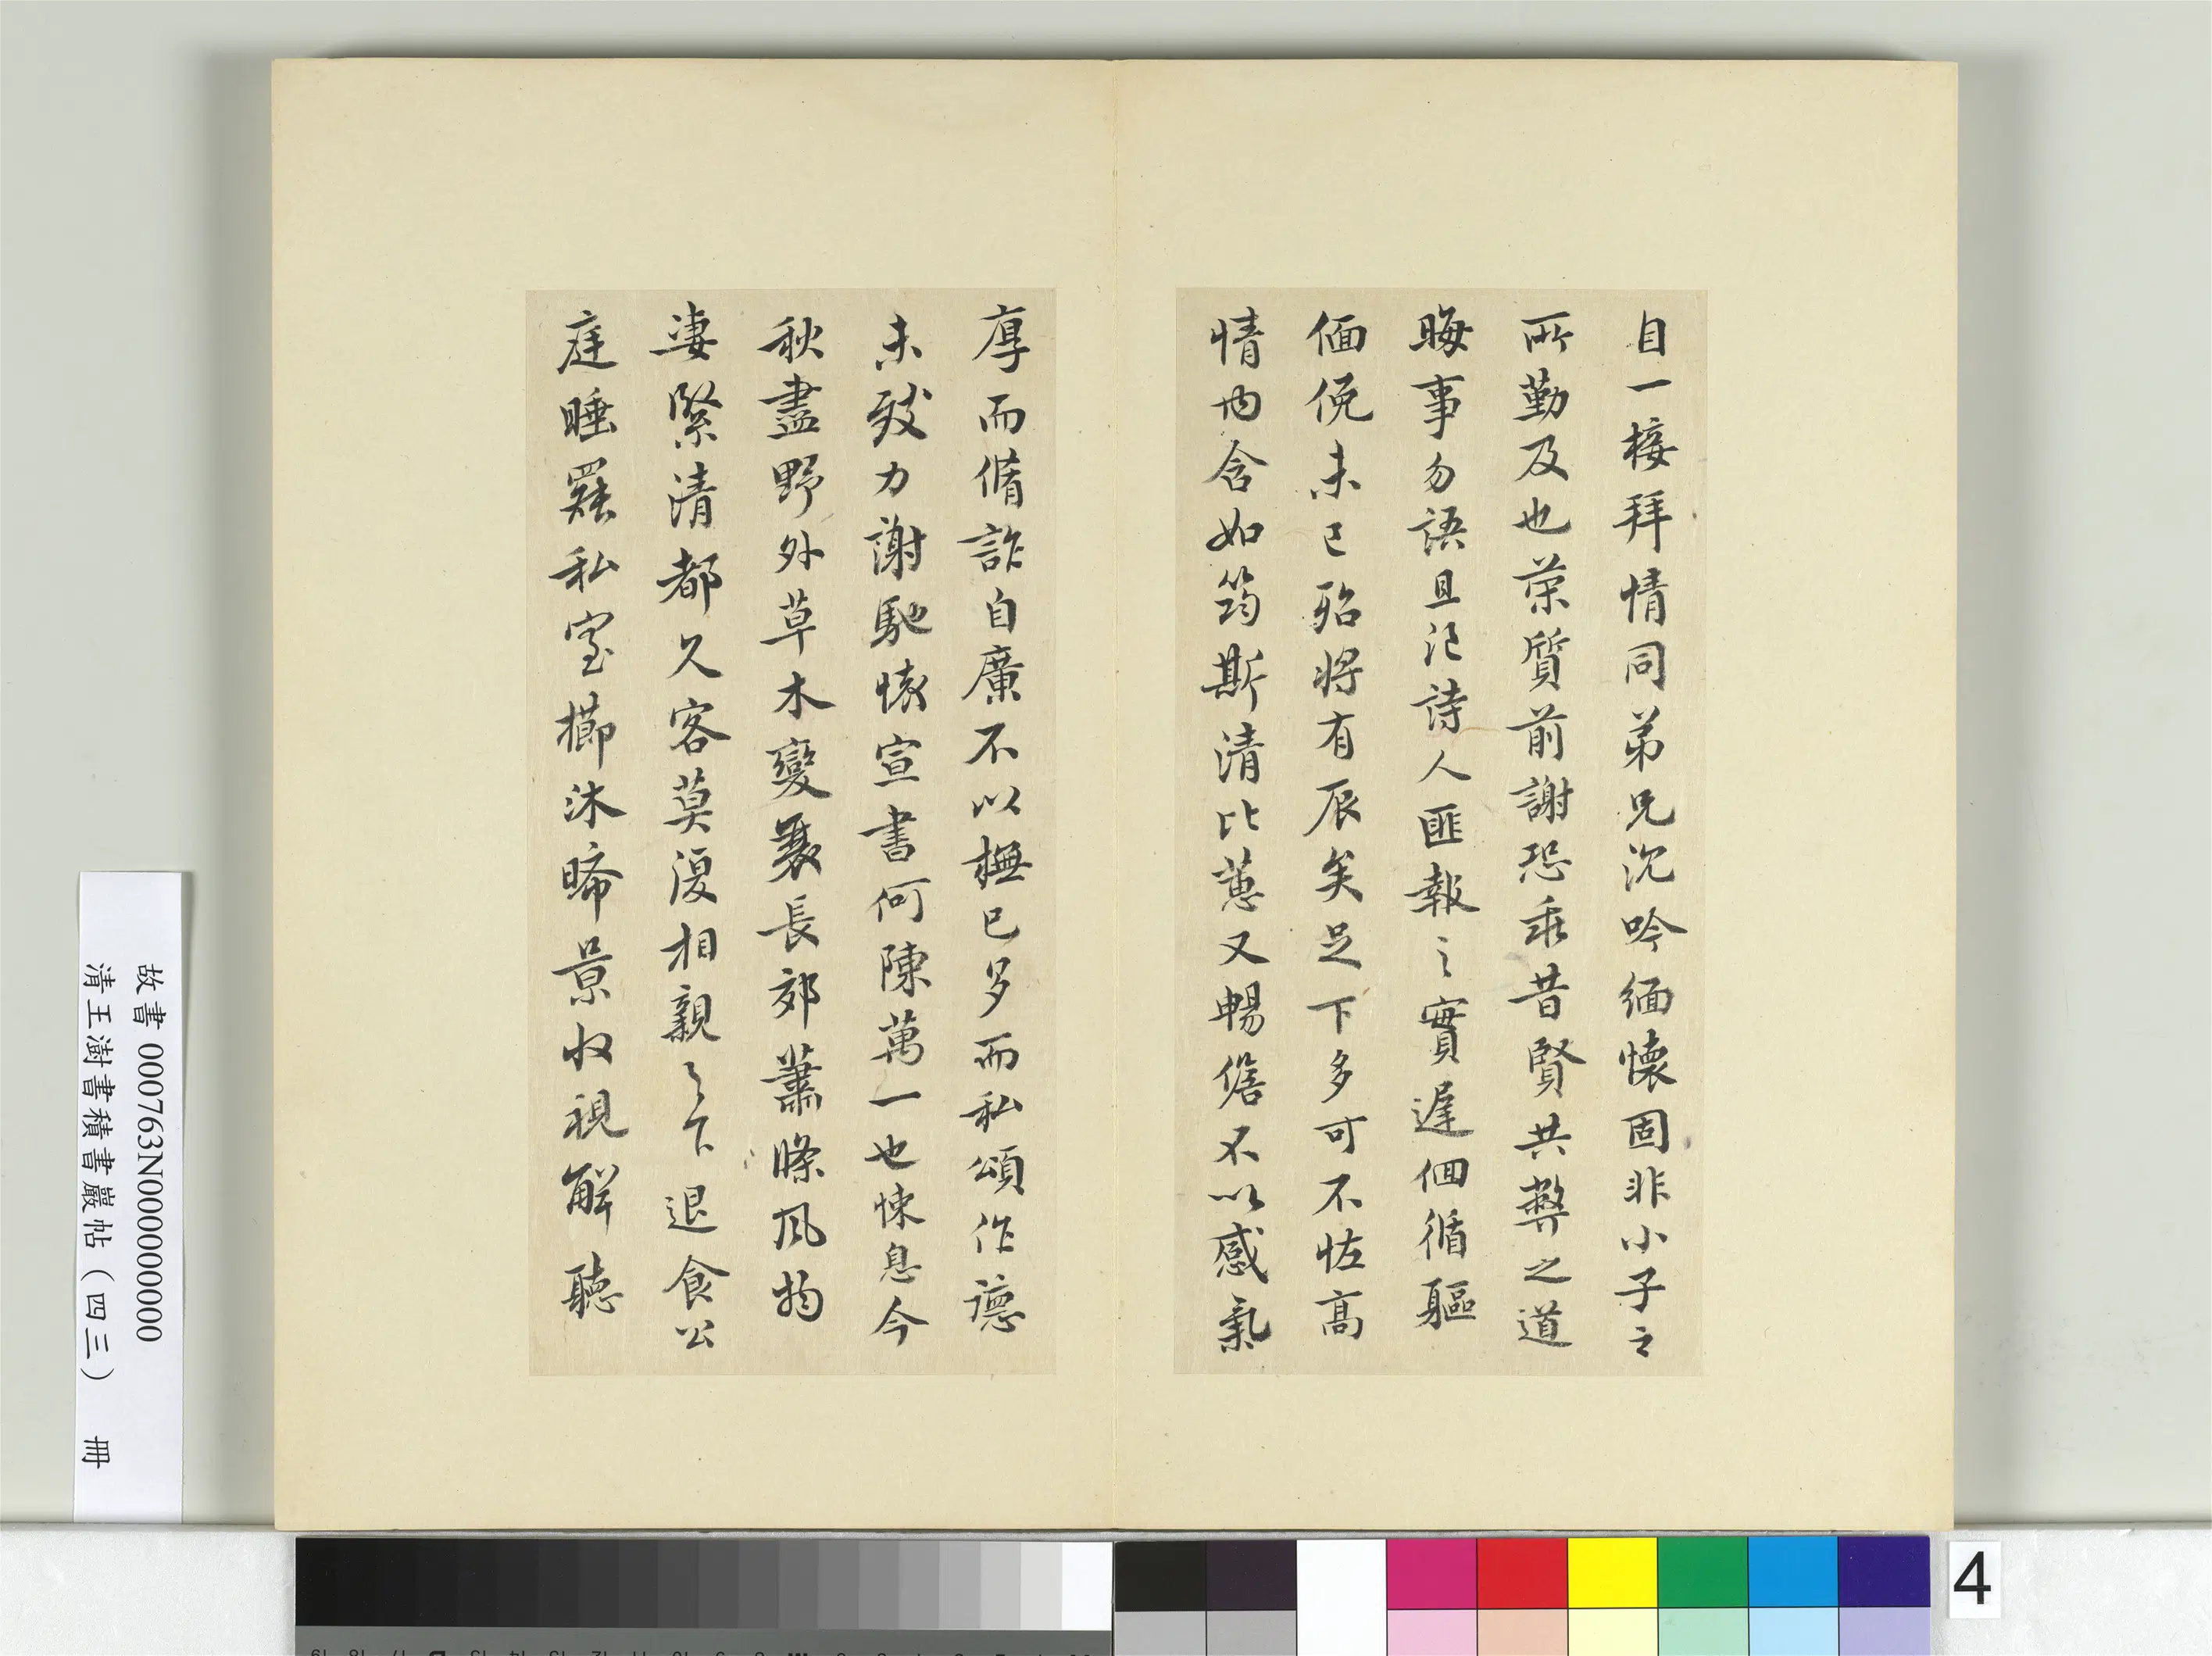 自一接拜情同弟兄沉吟緬懷固非小子之
所勤及也榮質前謝恐乖昔賢共弊之道
晦事勿語且汜詩人匪報之實遲佪循軀
偭俛未已殆將有辰矣足下多可不恡高
情內含如筠斯清比蕙又暢儋不以感氣
厚而脩詐自廉不以撫已多而私頌作德
未致力謝馳懷宣書何陳萬一也悚息今
秋盡野外草木變衰長郊蕭條風物
淒緊清都久客莫復相親之下退食公
庭睡罷私室櫛沐晞景收視解聽
故書 000763N000000000
清王澍書積書巖帖(四三) 冊
4